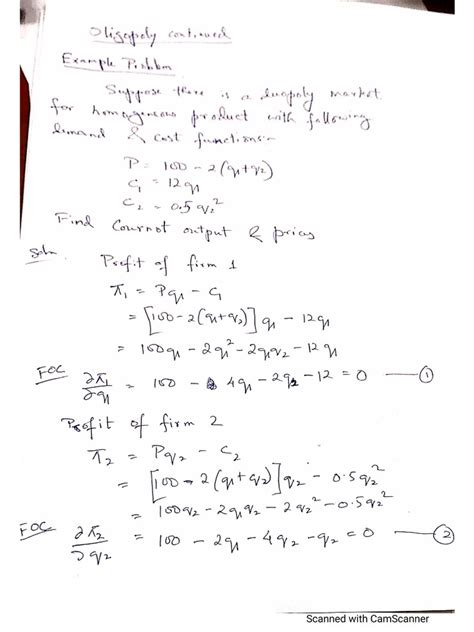 Oligopoly continued
Example Problem
Suppose there is a duopoly market
for homogeneous product with following
demand & cost functions-
P = 100 - 2(q1+q2)
C1 = 12q1
C2 = 0.5q2²
Find Cournot output & prices
Soln. Profit of firm 1
π1 = Pq1 - C1
= [100 - 2(q1+q2)] q1 - 12q1
= 100q1 - 2q1² - 2q1q2 - 12q1
FOC ∂π1/∂q1 = 100 - 4q1 - 2q2 - 12 = 0 — ①
Profit of firm 2
π2 = Pq2 - C2
= [100 - 2(q1+q2)] q2 - 0.5q2²
= 100q2 - 2q1q2 - 2q2² - 0.5q2²
FOC ∂π2/∂q2 = 100 - 2q1 - 4q2 - q2 = 0 — ②
Scanned with CamScanner